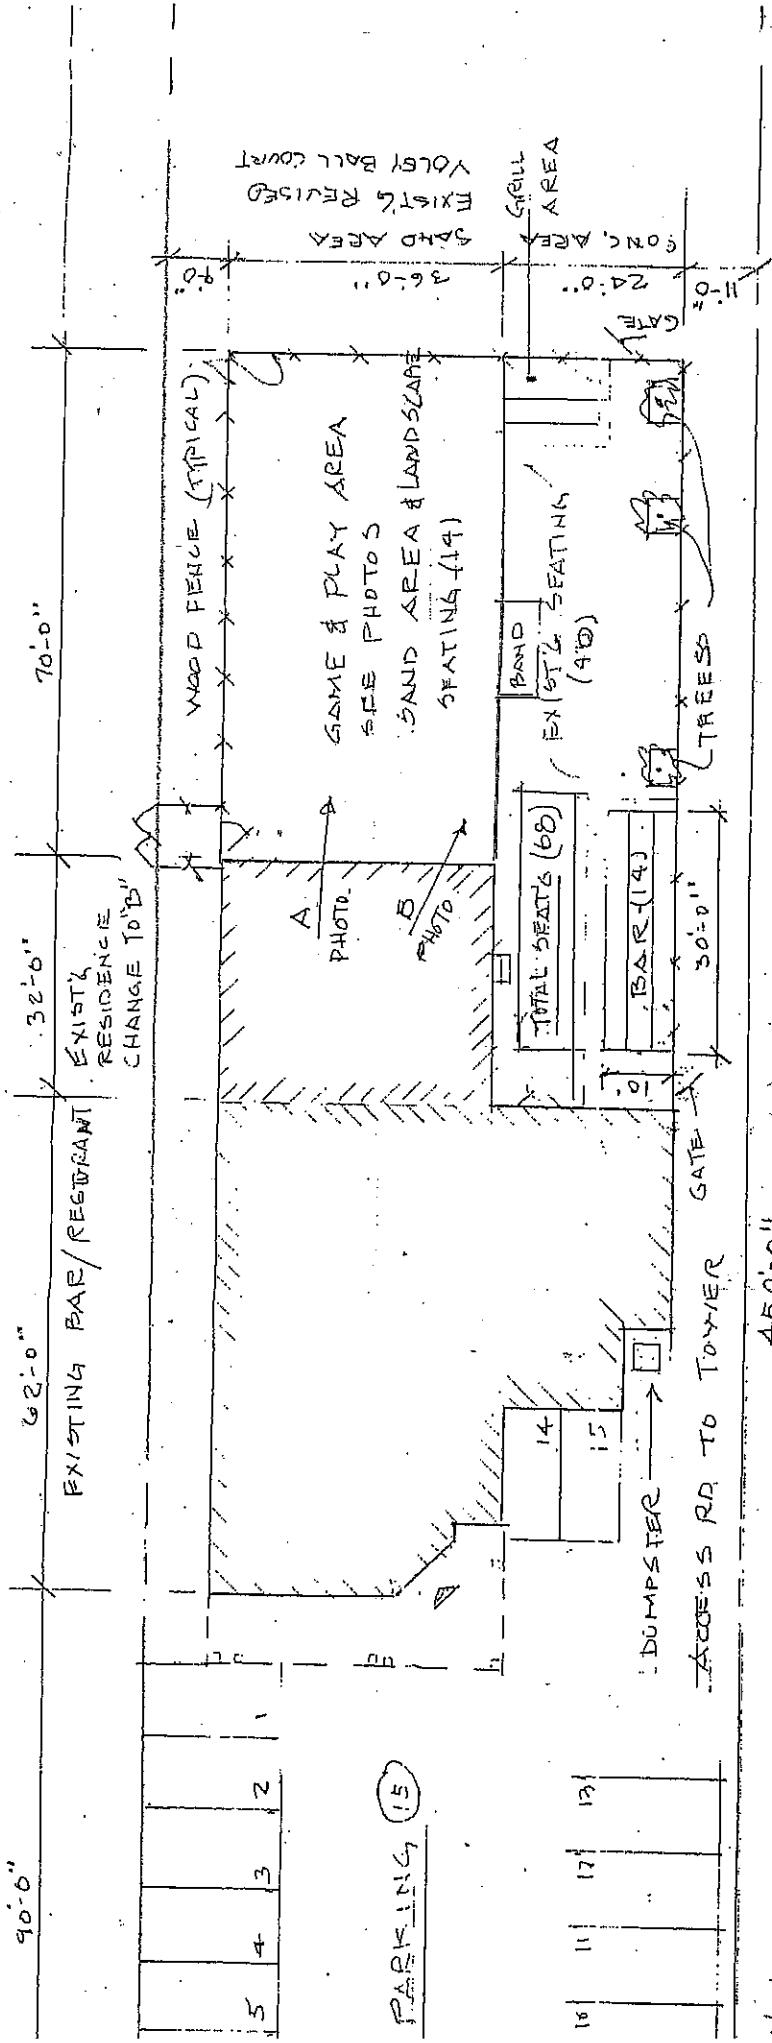 90'-0"
62'-0"
32'-0"
70'-0"
EXISTING BAR/RESTORANT
EXIST'G
RESIDENCE
CHANGE TO "B"
WOOD FENCE (TYPICAL)
9'-0"
36'-0"
24'-0"
11'-0"
SAND AREA
EXIST'G REVISED
VOLEY BALL COURT
CONC. AREA
GRILL
AREA
GATE
GAME & PLAY AREA
SEE PHOTOS
SAND AREA & LANDSCAPE
SEATING (14)
A
PHOTO
B
PHOTO
BAND
EXIST'G SEATING
(40)
TOTAL SEAT'G (68)
BAR (14)
30'-0"
TREES
GATE
14
15
DUMPSTER
ACCESS RD. TO TOWER
450'-0"
1
2
3
4
5
PARKING (15)
10
11
12
13